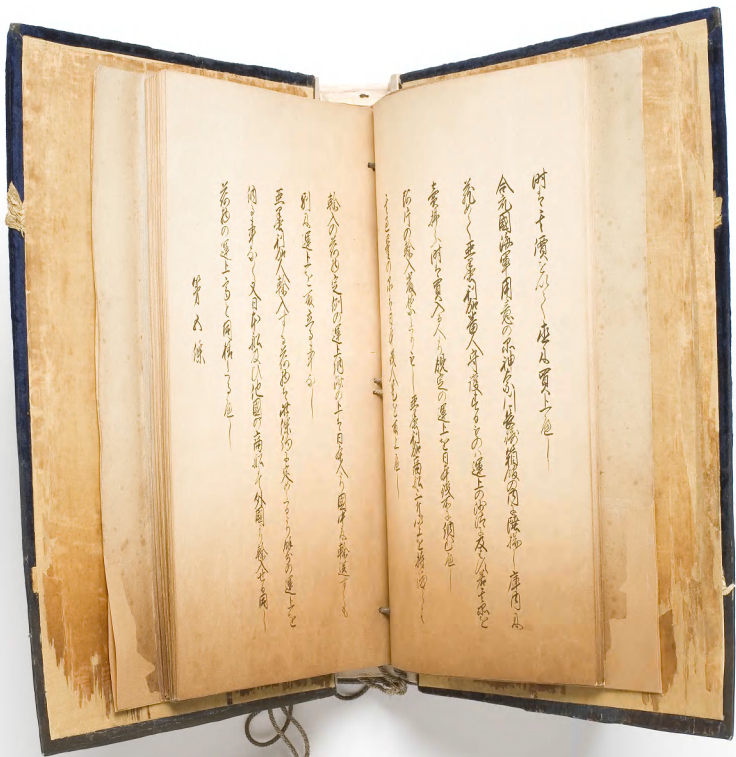 時は其價を以て直に買上へし
合衆國海軍用意の品神奈川長崎箱館の内に陸揚し庫内に
藏めて亜墨利加番人守護するものは運上の沙汰に及はす若其品を
賣拂ふ時は買入る人より規定の運上を日本役所に納むへし
阿片の輸入嚴禁たり若し亜墨利加商船三斤以上を持渡らは
其過量の品々は日本役人之を取上へし
輸入の荷物定例の運上納済の上は日本人より國中に輸送すとも
別に運上を取立る事なし
亜墨利加人輸入する荷物は此條約にて定めたるより餘分の運上を
納る事なく又日本船及ひ他國の商船にて外國より輸入せる同し
荷物の運上高と同様たるへし
第五條